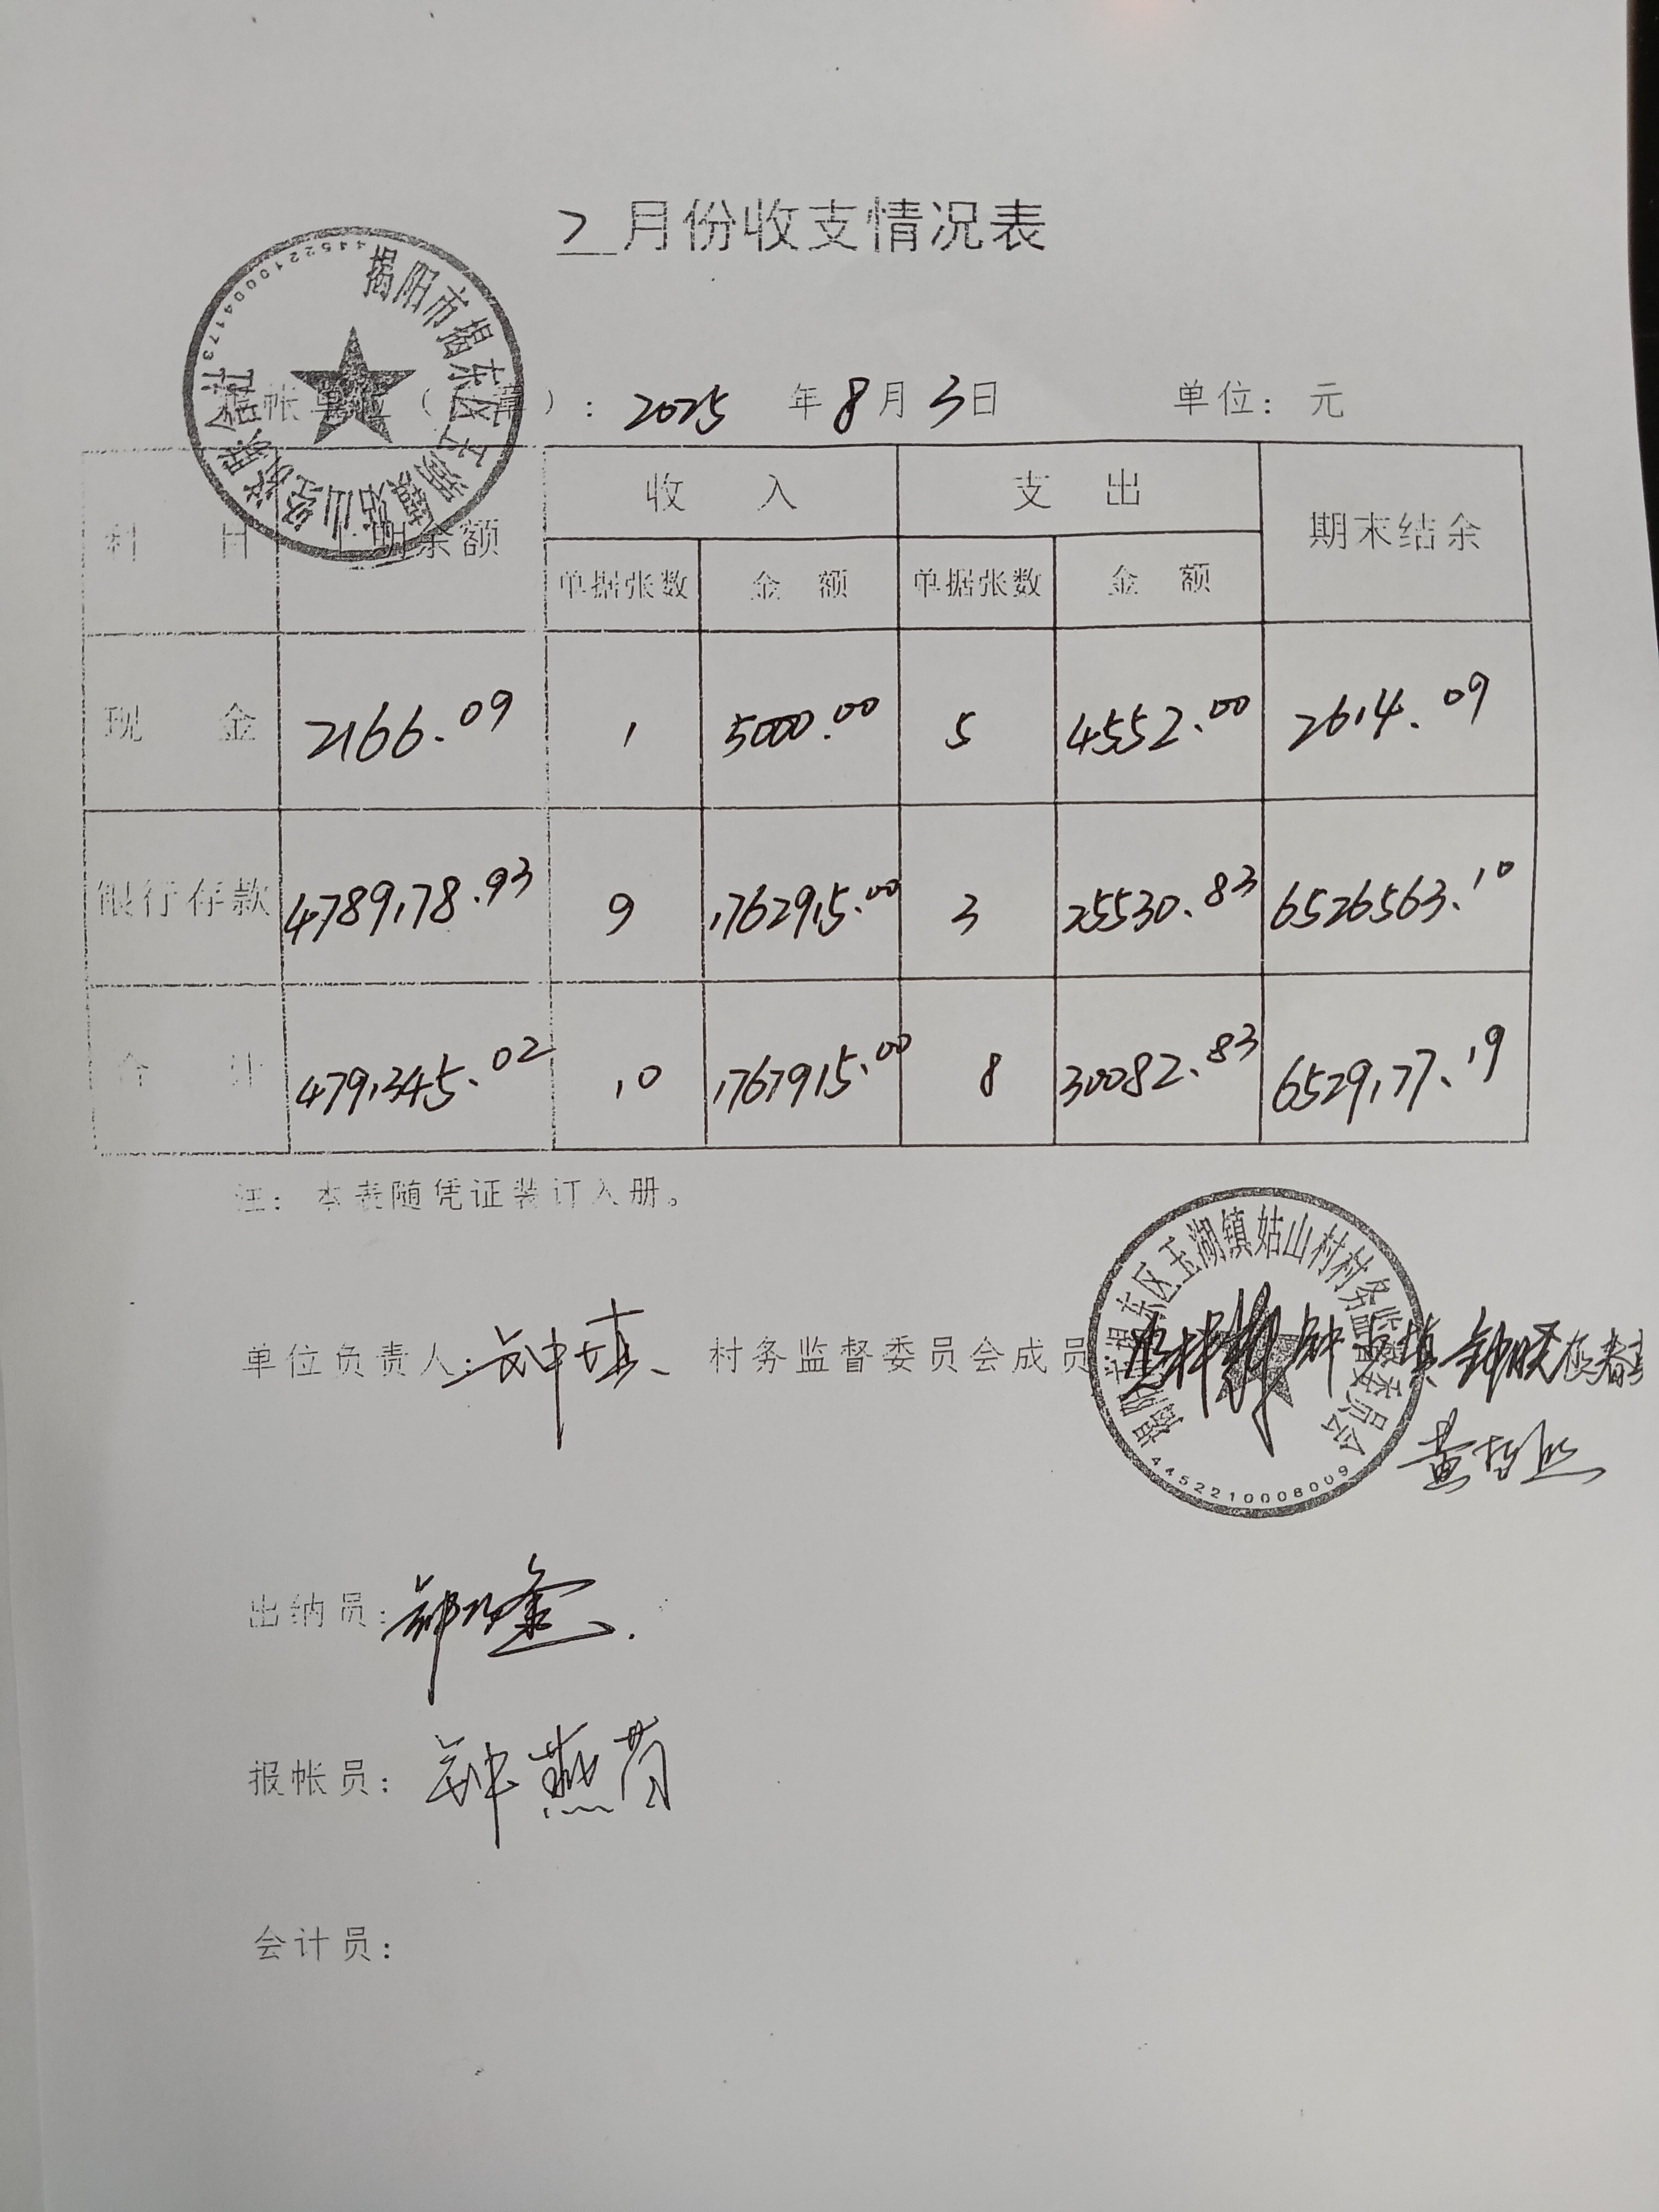 7月份收支情况表
揭阳市揭东区玉湖镇姑山经济联合社
4452210004173
报帐单位(章): 2025 年 8 月 3 日 单位: 元
科 目 上期余额 收 入 支 出 期末结余
单据张数 金 额 单据张数 金 额
现 金 2166.09 1 5000.00 5 4552.00 2614.09
银行存款 4789178.93 9 1762915.00 3 25530.83 6526563.10
合 计 4791345.02 10 1767915.00 8 30082.83 6529177.19
注: 本表随凭证装订入册。
单位负责人: 钟 村务监督委员会成员:
揭阳市揭东区玉湖镇姑山村村务监督委员会
4452210008009
出纳员:
报帐员: 钟燕
会计员: